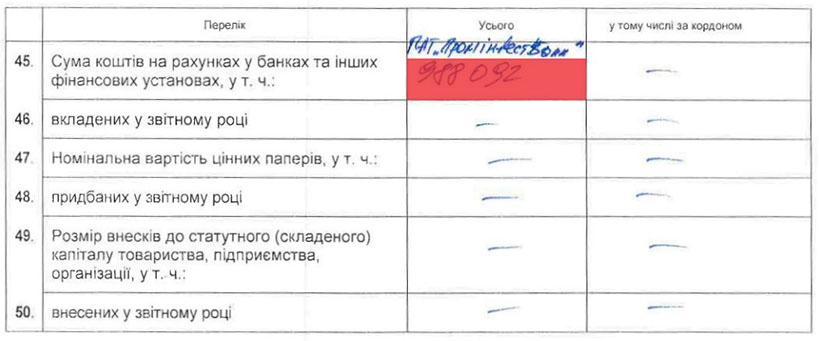 Перелік Усього у тому числі за кордоном
45. Сума коштів на рахунках у банках та інших
фінансових установах, у т. ч.:
ПАТ „Промінвестбанк"
988 092 — 
46. вкладених у звітному році — —
47. Номінальна вартість цінних паперів, у т. ч.: — —
48. придбаних у звітному році — —
49. Розмір внесків до статутного (складеного)
капіталу товариства, підприємства,
організації, у т. ч.: — —
50. внесених у звітному році — —